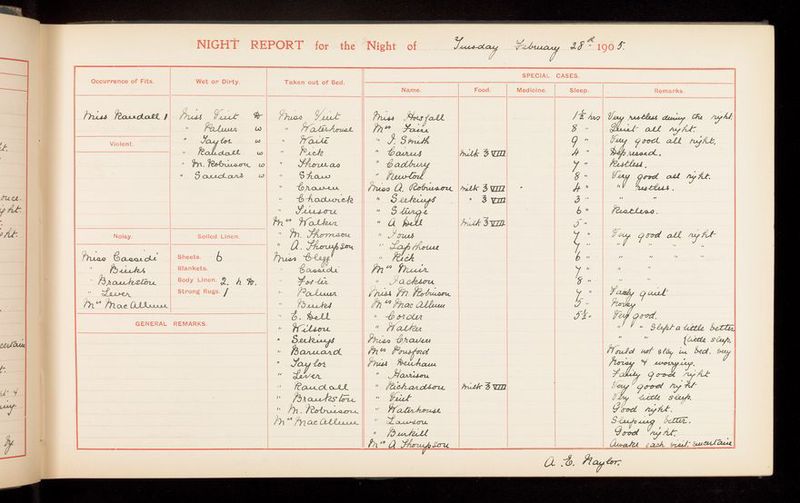 NIGHT REPORT for the Night of Tuesday February 28th 1905.
SPECIAL CASES.
Occurrence of Fits. Wet or Dirty. Taken out of Bed. Name. Food. Medicine. Sleep. Remarks.
Miss Randall 1
Violent.
Noisy.
Miss Cassidi
" Binks
" Brankston
" Lever
Mrs MacAllum
Miss Vint
" Palmer w
" Taylor w
" Randall w
" M. Robinson w
" Sandars w
Soiled Linen.
Sheets. 6
Blankets.
Body Linen. 2.
Strong Rugs. 1
GENERAL REMARKS.
Miss Vint
" Waterhouse
" Waite
" Rick
" Thomas
" Shaw
" Craven
" Chadwick
" Tinson
Mrs Walker
" M. Thomson
" A. Thompson
Miss Clegg
" Cassidi
" Foster
" Palmer
" Binks
" E. Bell
" Wilson
" Seekings
" Barnard
" Taylor
" Lever
" Randall
" Brankston
" M. Robinson
Mrs MacAllum
Miss Horsfall 1½ hrs Very restless during the night
Mrs Faire 8 " Quiet all night.
" J. Smith 9 " Very good all night.
" Cairns milk ℥ VIII 4 " Depressed.
" Cadbury 7 " Restless.
" Newton 8 " Very good all night.
Miss A. Robinson milk ℥ VIII 4 " " restless.
" Seekings " ℥ VIII 3 " " "
" Sturge 6 " Restless.
" A Bell milk ℥ VIII 5 "
" Jones 7 " Very good all night
" Laphorne " " " "
" Rick 6 " " " " "
Mrs Muir 7 " " "
" Jackson 8 " " "
Miss M. Robinson 7 " Fairly quiet
Mrs MacAllum 5 " Noisy
" Corder 5½ " Very good.
" Walker " " Slept a little better
Miss Craven " " (little sleep
Mrs Pousford Would not stay in bed. very
Miss Henham noisy & worrying.
" Harrison Fairly good night
" Richardson milk ℥ VIII Very good night
" Vint Very little sleep
" Waterhouse Good night.
" Lawson Sleeping better.
" Burkill Good night.
Mrs A. Thompson Awake each visit. uncertain
A. E. Naylor.